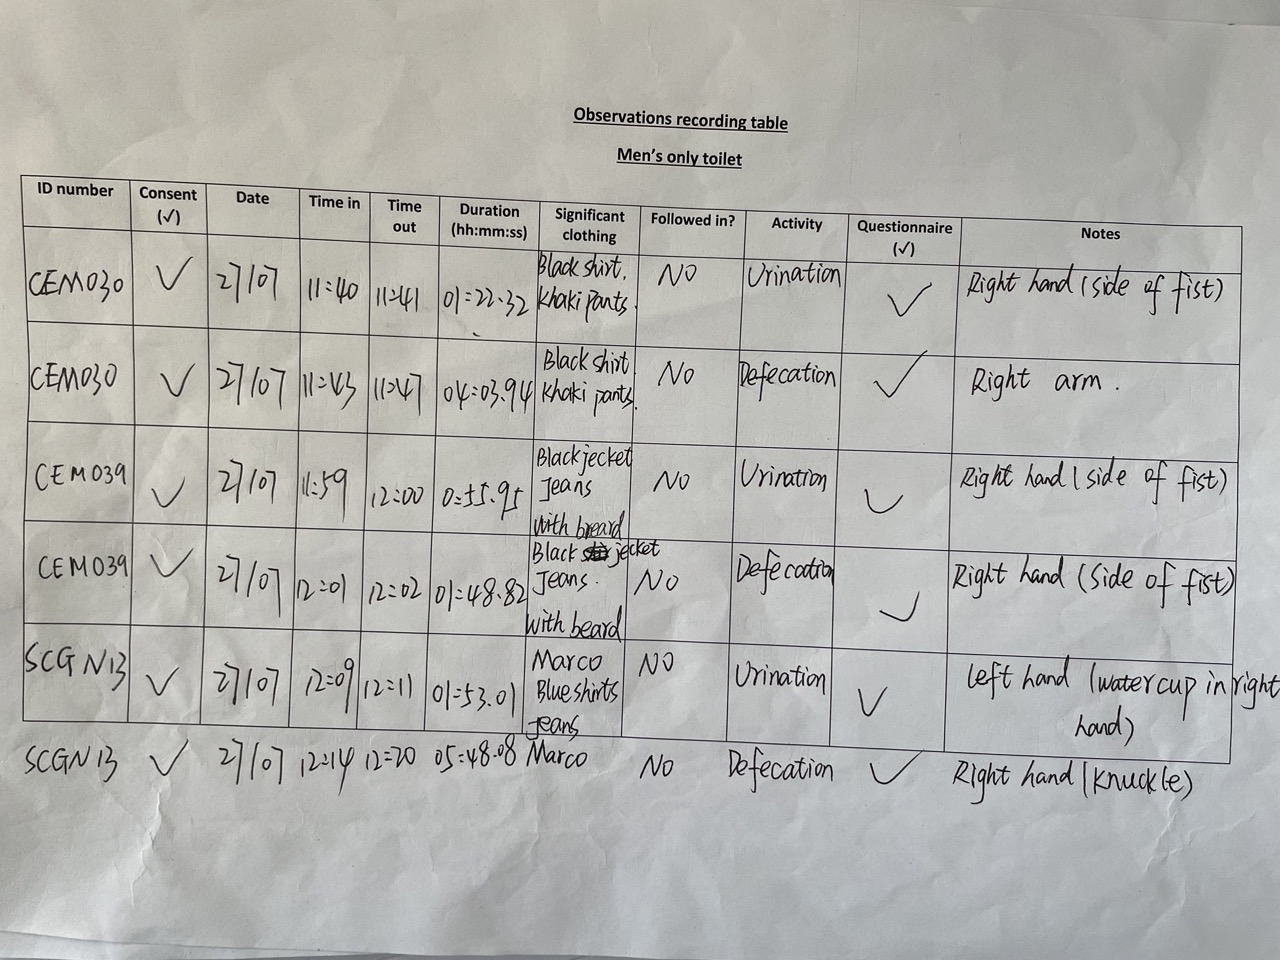 Observations recording table
Men's only toilet
ID number Consent (√) Date Time in Time out Duration (hh:mm:ss) Significant clothing Followed in? Activity Questionnaire (√) Notes
CEM030 √ 27/07 11:40 11:41 01:22.32 Black shirt. Khaki pants. NO Urination √ Right hand (side of fist)
CEM030 √ 27/07 11:43 11:47 04:03.94 Black shirt Khaki pants. No Defecation √ Right arm.
CEM039 √ 27/07 11:59 12:00 0:55.95 Black jecket Jeans with breard No Urination √ Right hand (side of fist)
CEM039 √ 27/07 12:01 12:02 01:48.82 Black jecket Jeans. with beard No Defecation √ Right hand (side of fist)
SCGN13 √ 27/07 12:09 12:11 01:53.01 Marco Blue shirts Jeans NO Urination √ left hand (water cup in right hand)
SCGN13 √ 27/07 12:14 12:20 05:48.08 Marco No Defecation √ Right hand (knuckle)